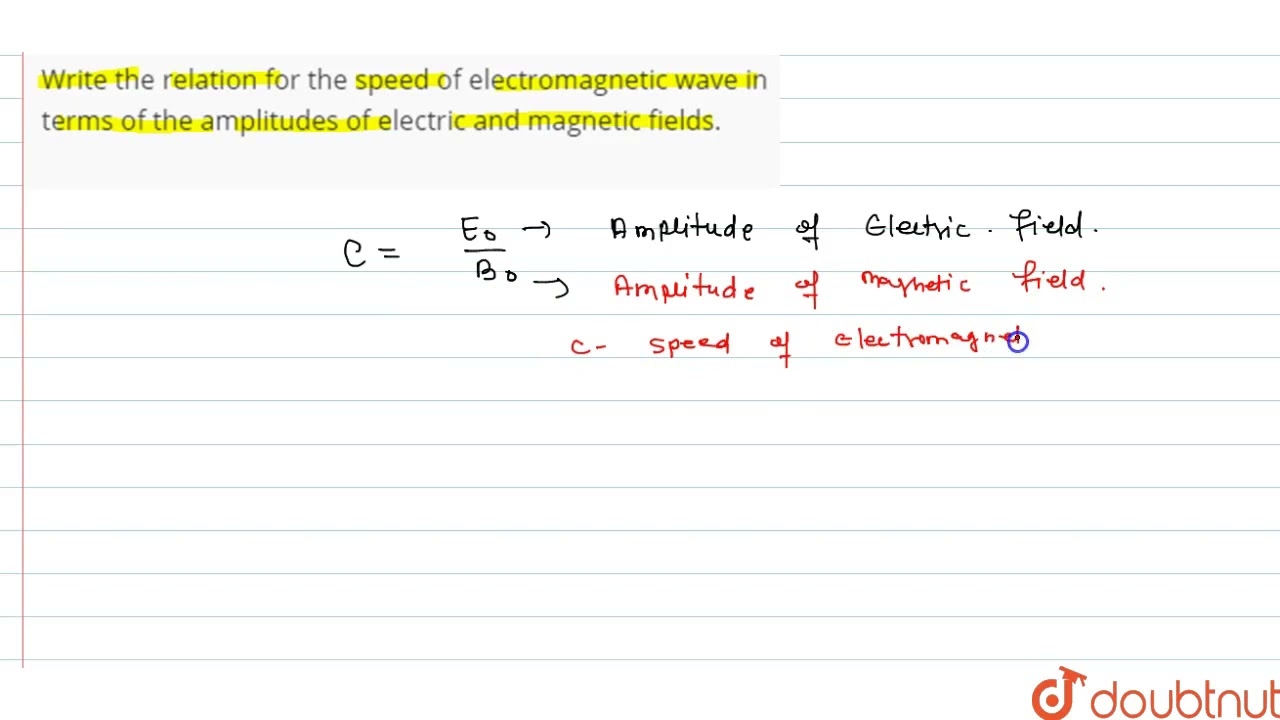 Write the relation for the speed of electromagnetic wave in
terms of the amplitudes of electric and magnetic fields.
C = E₀/B₀ → Amplitude of Electric. field.
→ Amplitude of magnetic field.
C- speed of electromagnet
doubtnut